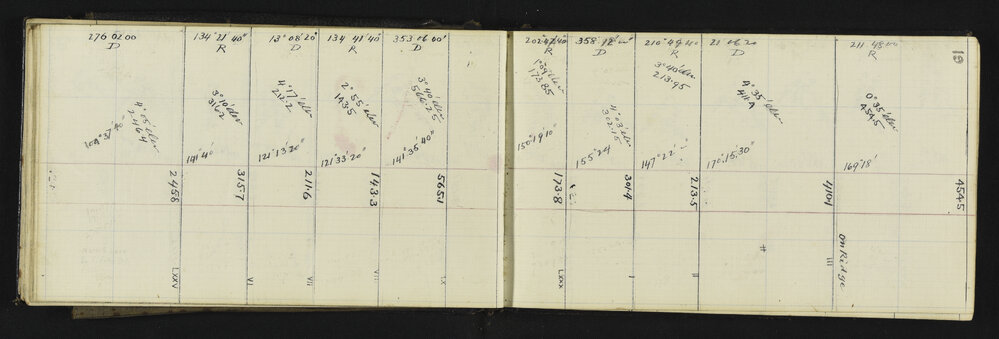 276 02 00
D
4° 05' elev
246.4
109° 27' 40"
245.8
LXXV
134° 21' 40"
R
3° 10' elev
316.2
141° 40'
315.7
VI
13° 08' 20"
D
4° 17' elev
212.2
121° 13' 20"
211.6
VII
134 41' 40"
R
2° 55' elev
143.5
121° 33' 20"
143.3
VIII
353 06 00'
D
3° 40' elev
566.25
141° 35' 40"
565.1
IX
202° 47' 40"
R
1° 09' elev
173.85
150° 19' 10"
173.8
LXXX
358° 12' 00"
D
4° 03' elev
302.15
155° 24
301.4
I
210° 49 40
R
3° 40' elev
213.95
147° 22'
213.5
II
21 06 20
D
4° 35' elev
411.4
170° 15' 30"
410.1
III
211 48 00
0° 35' elev
454.5
169° 18'
454.5
on Ridge
19